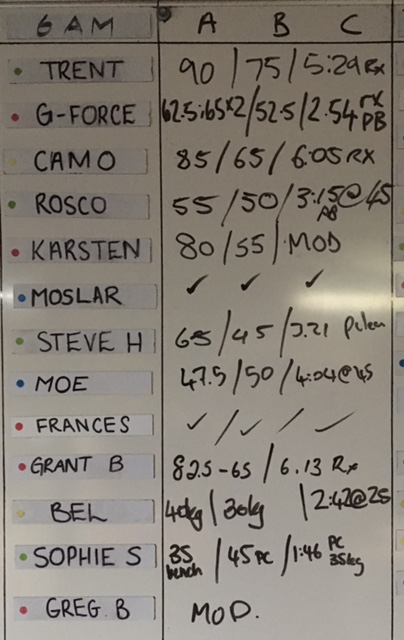 6 AM A B C
TRENT 90 / 75 / 5:29 Rx
G-FORCE 62.5:65x2 / 52.5 / 2.54 rx PB
CAMO 85 / 65 / 6:05 RX
ROSCO 55 / 50 / 3:15 @ 45
KARSTEN 80 / 55 / MOD
MOSLAR ✓ ✓ ✓
STEVE H 65 / 45 / 3.21
MOE 47.5 / 50 / 4:04 @ 45
FRANCES ✓ / ✓ / ✓
GRANT B 82.5 - 65 / 6.13 Rx
BEL 40kg | 30kg | 2:42 @ 25
SOPHIE S 35 bench / 45 PC / 1:46 PC 35kg
GREG. B MOD.